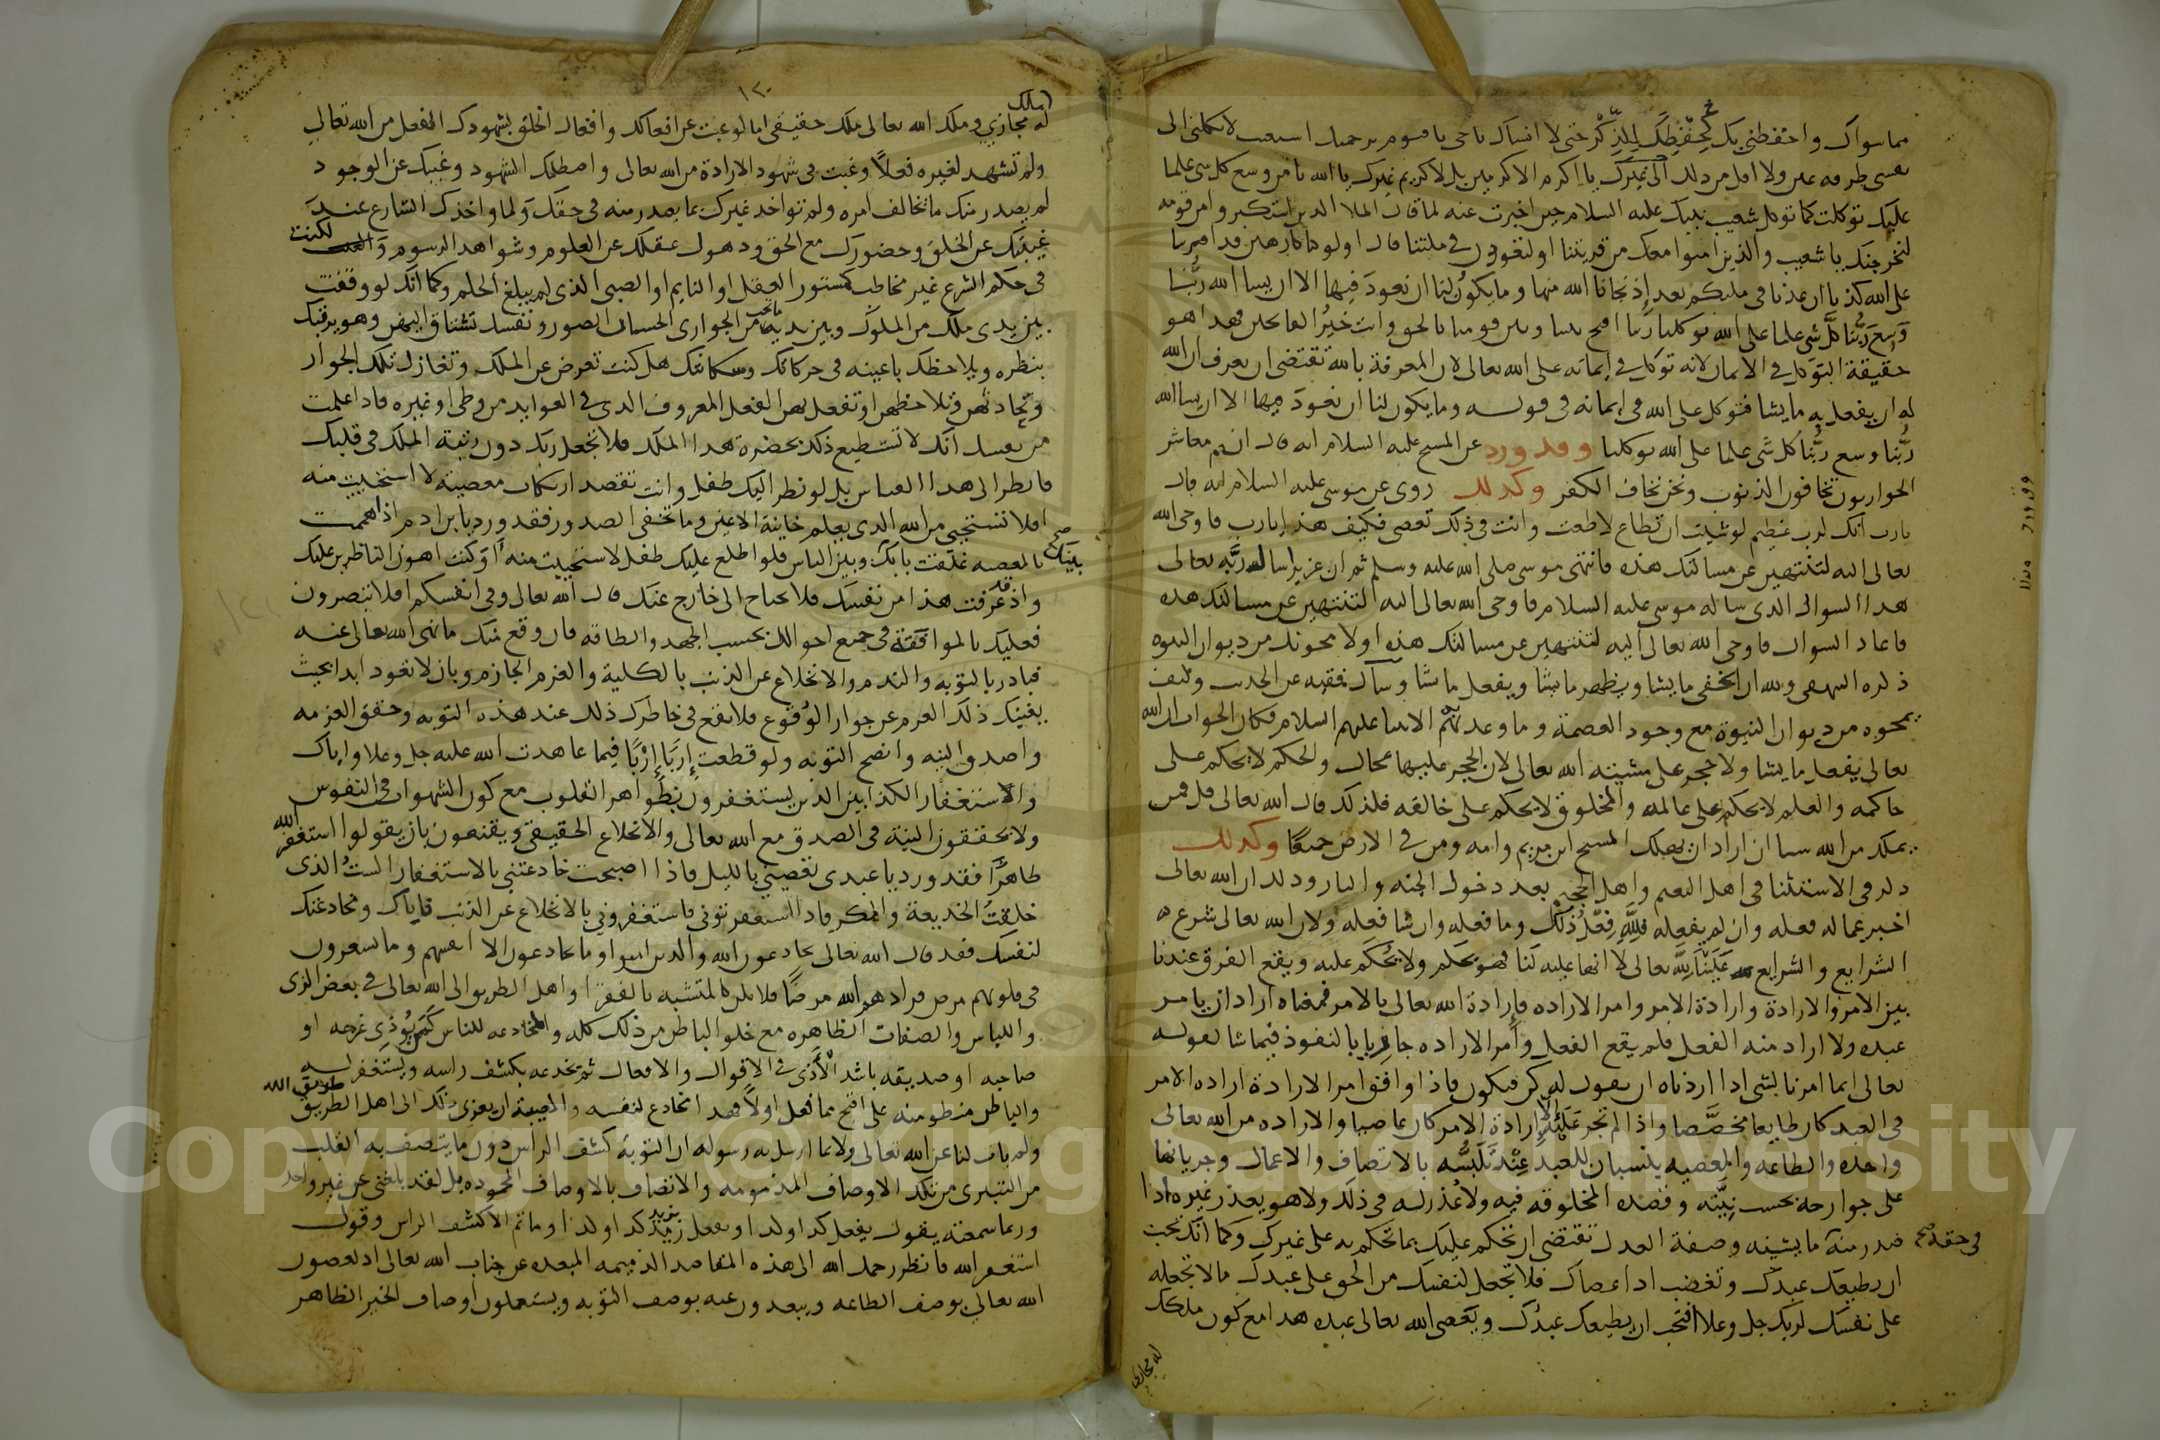 مما سواك واحفظني بك كحفظك للذكر حتى لا انساك ياحي يا قيوم برحمتك استغيث لا تكلني الى
نفسي طرفه عين ولا اقل من ذلك الى غيرك يا اكرم الاكرمين بل لا كريم غيرك يا الله يا من وسع كل شي علما
عليك توكلت كما توكل شعيب نبيك عليه السلام حين اخبرت عنه لما قال الملا الذين استكبروا من قومه
لنخرجنك يا شعيب والذين امنوا معك من قريتنا او لتعودن في ملتنا قال اولو كنا كارهين قد افترينا
على الله كذبا ان عدنا في ملتكم بعد إذ نجانا الله منها وما يكون لنا ان نعود فيها الا ان يشا الله ربنا
وسع ربنا كل شي علما على الله توكلنا ربنا افتح بيننا وبين قومنا بالحق وانت خير الفاتحين فهذا هو
حقيقة التوكل في الايمان لانه توكل في إيمانه على الله تعالى لان المعرفة بالله تقتضي ان يعرف ان الله
له ان يفعل به ما يشا فتوكل على الله في ايمانه في قوله وما يكون لنا ان نعود فيها الا ان يشا الله
ربنا وسع ربنا كل شي علما على الله توكلنا وقد ورد عن المسيح عليه السلام انه قال انتم معاشر
الحواريون تخافون الذنوب ونحن نخاف الكفر وكذلك روي عن موسى عليه السلام انه قال
يارب انك لرب عظيم لو شيت ان تطاع لاطعت وانت في ذلك تعصى فكيف هذا يارب فاوحى الله
تعالى اليه لتنتهين عن مسالتك هذه فانتهى موسى صلى الله عليه وسلم ثم ان عزيرا سال ربه تعالى
هذا السوال الذي ساله موسى عليه السلام فاوحى الله تعالى اليه لتنتهين عن مسالتك هذه
فاعاد السوال فاوحى الله تعالى اليه لتنتهين عن مسالتك هذه او لا محونك من ديوان النبوه
ذكره البيهقي ولله ان يخفي ما يشا ويظهر ما يشا ويفعل ما شا وسال فقيه عن الحديث وكيف
يمحوه من ديوان النبوة مع وجود العصمة وما وعد الانبيا عليهم السلام فكان الجواب ان الله
تعالى يفعل ما يشا ولا حجر على مشيته الله تعالى لان الحجر عليها محال والحكم لا يحكم على
حاكمه والعلم لا يحكم على عالمه والمخلوق لا يحكم على خالقه فلذلك قال الله تعالى قل فمن
يملك من الله شيا ان اراد ان يهلك المسيح ابن مريم وامه ومن في الارض جميعا وكذلك
ذكر في الاستثنا في اهل النعيم واهل الجحيم بعد دخول الجنه والنار وذلك ان الله تعالى
اخبر بما له فعله وان لم يفعله فلله فعل ذلك وما فعله وان شا فعله ولان الله تعالى شرع
الشرايع والشرايع علينا لله تعالى لا انها عليه لنا فهو يحكم ولا يحكم عليه ويقع الفرق عندنا
بين الامر والارادة وارادة الامر وامر الاراده فإرادة الله تعالى بالامر فمعناه اراد ان يامر
عبده ولا اراد منه الفعل فلم يقع الفعل وامر الاراده جا بالنفوذ فيما شا لقوله
تعالى انما امرنا لشي اذا اردناه ان نقول له كن فيكون فاذا وافق امر الارادة ارادة الامر
في العبد كان طايعا مخصصا واذا لم تجر عليه إرادة الامر كان عاصيا والاراده من الله تعالى
واحده والطاعه والمعصيه ينسبان للعبد عند تلبسه بالاتصاف والاعمال وجريانها
على جوارحه بحسب نيته وقصده المخلوقه فيه ولا عذر له في ذلك ولا هو يعذر غيره اذا
صدر منه ما يشينه وصفة العدل تقتضي ان تحكم عليك بما تحكم به على غيرك وكما انك تحب
في حقه صح
ان يطيعك عبدك وتغضب اذا عصاك فلا تجعل لنفسك من الحق على عبدك ما لا تجعله
على نفسك لربك جل وعلا افتحب ان يطيعك عبدك ويعصى الله تعالى عبده هذا مع كون ملكك
له مجازي
١٢٠
له مجازي وملك الله تعالى ملك حقيقي اما لو غبت عن افعالك وافعال الخلق بشهودك الفعل من الله تعالى
ولم تشهد لغيره فعلا وغبت في شهود الارادة من الله تعالى واصطلمك الشهود وغيبك عن الوجود
لم يصدر منك ما تخالف امره ولم تواخذ غيرك بما يصدر منه في حقك ولما واخذك الشارع عند
غيبتك عن الخلق وحضورك مع الحق وذهول عقلك عن العلوم وشواهد الرسوم و لكنت
في حكم الشرع غير مخاطب كمستور العقل او النايم او الصبي الذي لم يبلغ الحلم وكما انك لو وقفت
بين يدي ملك من الملوك وبين يديه من الجواري الحسان الصور ونفسك تشتاق اليهن وهو يرقبك
بنظره ويلاحظك باعينه في حركاتك وسكناتك هل كنت تعرض عن الملك وتغازل تلك الجوار
وتحادثهن وتلاحظهن او تفعل بهن الفعل المعروف الذي في العوايد من وطي او غيره فاذا علمت
من نفسك انك لا تستطيع ذلك بحضرة هذا الملك فلا تجعل ربك دون رتبة الملك في قلبك
فانظر الى هذا القياس بل لو نظر اليك طفل وانت تقصد ارتكاب معصية لاستحييت منه
افلا تستحيي من الله الذي يعلم خاينة الاعين وما تخفي الصدور فقد ورد يا بن ادم اذا هممت
بالمعصيه غلقت بابك وبين الناس فلو اطلع عليك طفل لاستحييت منه او كنت اهون الناظرين عليك
بينك صح
واذ قد عرفت هذا من نفسك فلا تحتاج الى خارج عنك قال الله تعالى وفي انفسكم افلا تبصرون
فعليك بالموافقة في جميع احوالك بحسب الجهد والطاقه فان وقع منك ما نهى الله تعالى عنه
فبادر بالتوبه والندم والانخلاع عن الذنب بالكلية والعزم الجازم وبان لا تعود ابدا بحيث
يغيبك ذلك العزم عن جواز الوقوع فلا يقع في خاطرك ذلك عند هذه التوبه وحقق العزمه
واصدق النيه وانصح التوبه ولو قطعت إربا إربا فيما عاهدت الله عليه جل وعلا واياك
والاستغفار الكذابين الذين يستغفرون بظواهر القلوب مع كون الشهوات في النفوس
ولا يحققون النية في الصدق مع الله تعالى والانخلاع الحقيقي ويقنعون بان يقولوا استغفر الله
ظاهرا فقد ورد يا عبدي تعصيني بالليل فاذا اصبحت خادعتني بالاستغفار الست الذي
خلقت الخديعة والمكر فاذا استغفرتموني فاستغفروني بالانخلاع عن الذنب فاياك ومخادعتك
لنفسك فقد قال الله تعالى يخادعون الله والذين امنوا وما يخادعون الا انفسهم وما يشعرون
في قلوبهم مرض فزادهم الله مرضا فلا تكن كالمتشبه بالفقرا واهل الطريق الى الله تعالى في بعض الزي
واللباس والصفات الظاهره مع خلو الباطن من ذلك كله والمخادعه للناس كمن يوذي غريمه او
صاحبه او صديقه باشد الأذى في الاقوال والافعال ثم يخدعه بكشف راسه ويستغفر له
والباطن منطو منه على اقبح مما فعل اولا فهذا انخادع لنفسه والمصيبة ان يعزى ذلك الى اهل الطريق
طريق الله
ولم يات لنا عن الله تعالى ولا بما ارسل به رسوله ان التوبة كشف الراس دون ما يتصف به القلب
من التبري من تلك الاوصاف المذمومه والاتصاف بالاوصاف المحموده بل لقد بلغني عن غير واحد
وربما سمعته يقول يفعل كذا ولدا او نفعل زيد كذا ولدا وما ثم الا كشف الراس وقول
استغفر الله فانظر رحمك الله الى هذه المقاصد الذميمه المبعده عن جناب الله تعالى اذ يعصون
الله تعالى بوصف الطاعه ويبعدون عنه بوصف التوبه ويستعملون اوصاف الخير الظاهر
Copyright © King Saud University